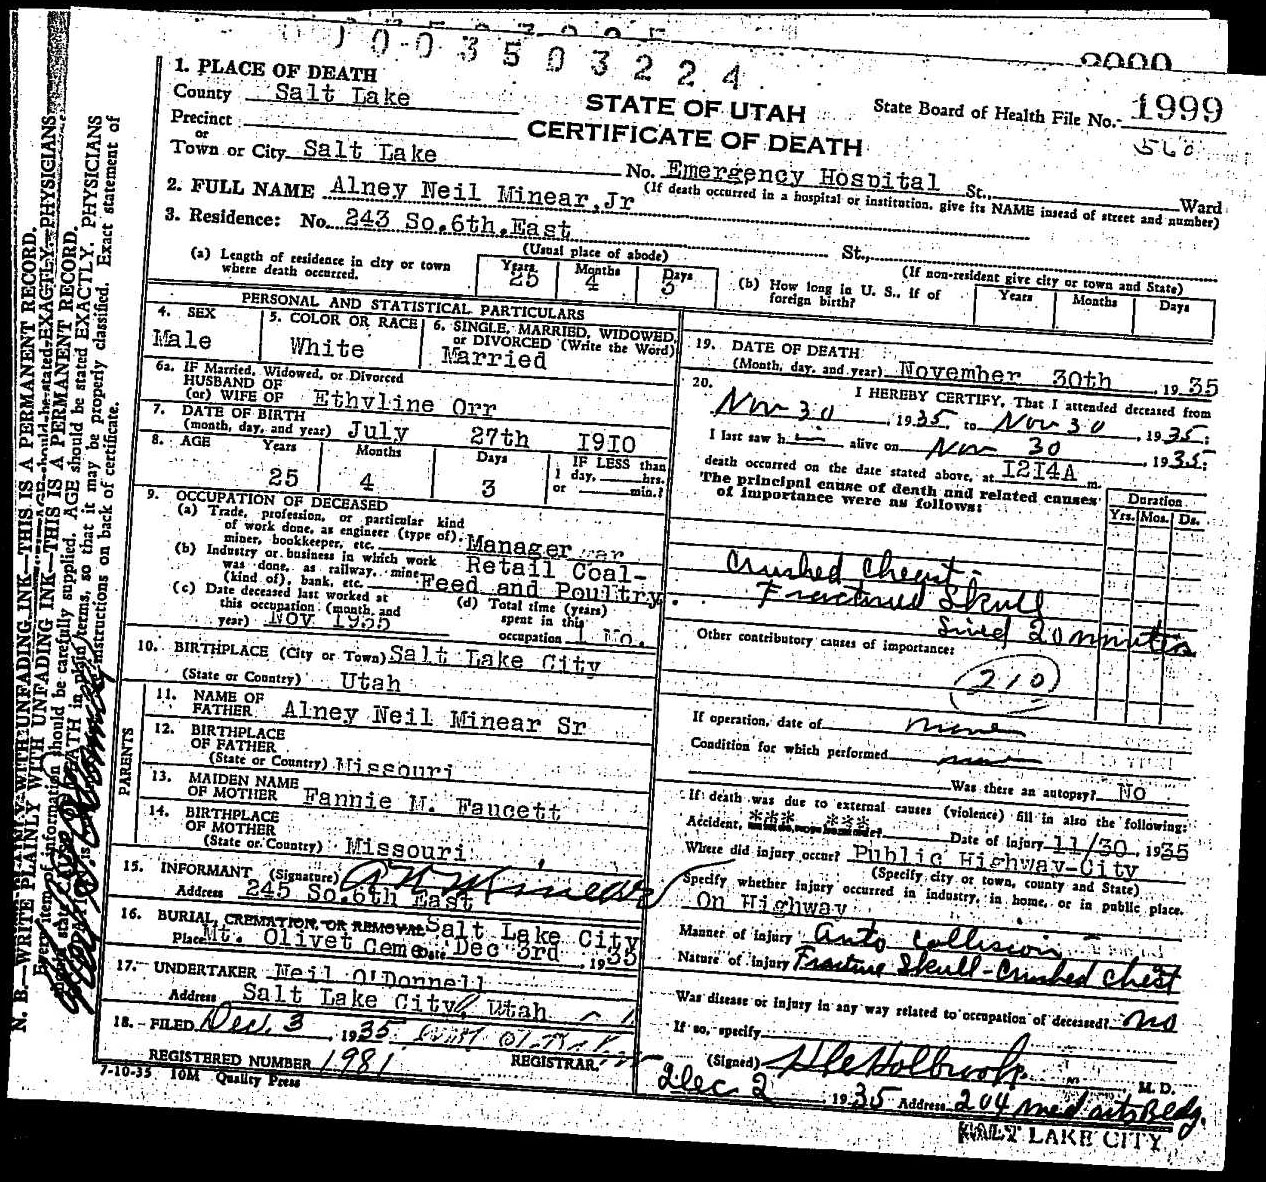 0003503224
2000
1. PLACE OF DEATH
County Salt Lake
STATE OF UTAH
CERTIFICATE OF DEATH
State Board of Health File No. 1999
560
Precinct
or
Town or City Salt Lake
No. Emergency Hospital St. Ward
(If death occurred in a hospital or institution, give its NAME instead of street and number)
2. FULL NAME Alney Neil Minear, Jr
3. Residence: No. 243 So.6th.East St.,
(Usual place of abode)
(If non-resident give city or town and State)
(a) Length of residence in city or town
where death occurred.
Years 25 Months 4 Days 3
(b) How long in U. S., if of
foreign birth?
Years Months Days
PERSONAL AND STATISTICAL PARTICULARS
4. SEX
Male
5. COLOR OR RACE
White
6. SINGLE, MARRIED, WIDOWED,
or DIVORCED (Write the Word)
Married
6a. IF Married, Widowed, or Divorced
HUSBAND OF
(or) WIFE OF Ethyline Orr
7. DATE OF BIRTH
(month, day, and year) July 27th 1910
8. AGE Years Months Days IF LESS than
25 4 3
1 day, hrs.
or min.?
9. OCCUPATION OF DECEASED
(a) Trade, profession, or particular kind
of work done, as engineer (type of),
miner, bookkeeper, etc. Manager
(b) Industry or business in which work
was done, as railway, mine
(kind of), bank, etc. Retail Coal-
Feed and Poultry.
(c) Date deceased last worked at
this occupation (month and
year) Nov 1935
(d) Total time (years)
spent in this
occupation 1 Mo.
10. BIRTHPLACE (City or Town) Salt Lake City
(State or Country) Utah
PARENTS
11. NAME OF
FATHER Alney Neil Minear Sr
12. BIRTHPLACE
OF FATHER
(State or Country) Missouri
13. MAIDEN NAME
OF MOTHER Fannie M. Faucett
14. BIRTHPLACE
OF MOTHER
(State or Country) Missouri
15. INFORMANT (Signature) A N Minear
Address 245 So.6th East
16. BURIAL, CREMATION, OR REMOVAL Salt Lake City
Place Mt. Olivet Ceme Date Dec 3rd 1935
17. UNDERTAKER Neil O'Donnell
Address Salt Lake City, Utah
18. FILED Dec. 3, 1935
REGISTRAR.
REGISTERED NUMBER 1981
7-10-35 10M Quality Press
19. DATE OF DEATH
(Month, day, and year) November 30th, 1935
20. I HEREBY CERTIFY, That I attended deceased from
Nov 30, 1935, to Nov 30, 1935;
I last saw h im alive on Nov 30 1935;
death occurred on the date stated above, at 1214A m.
The principal cause of death and related causes
of importance were as follows:
Duration
Yrs. Mos. Ds.
Crushed Chest-
Fractured Skull
Lived 20 minutes
Other contributory causes of importance:
210
If operation, date of none
Condition for which performed none
Was there an autopsy? No
If death was due to external causes (violence) fill in also the following:
Accident, *** *** Date of Injury 11/30, 1935
Where did injury occur? Public Highway-City
(Specify city or town, county and State)
Specify whether injury occurred in industry, in home, or in public place.
On Highway
Manner of injury Auto Collision
Nature of injury Fracture Skull-Crushed Chest
Was disease or injury in any way related to occupation of deceased? no
If so, specify
(Signed) Holbrook M. D.
Dec 2 1935 Address 204 Med arts Bldg.
SALT LAKE CITY
N. B.—WRITE PLAINLY WITH UNFADING INK—THIS IS A PERMANENT RECORD.
Every item of information should be carefully supplied. AGE should be stated EXACTLY. PHYSICIANS
should state CAUSE OF DEATH in plain terms, so that it may be properly classified. Exact statement of
OCCUPATION is instructions on back of certificate.